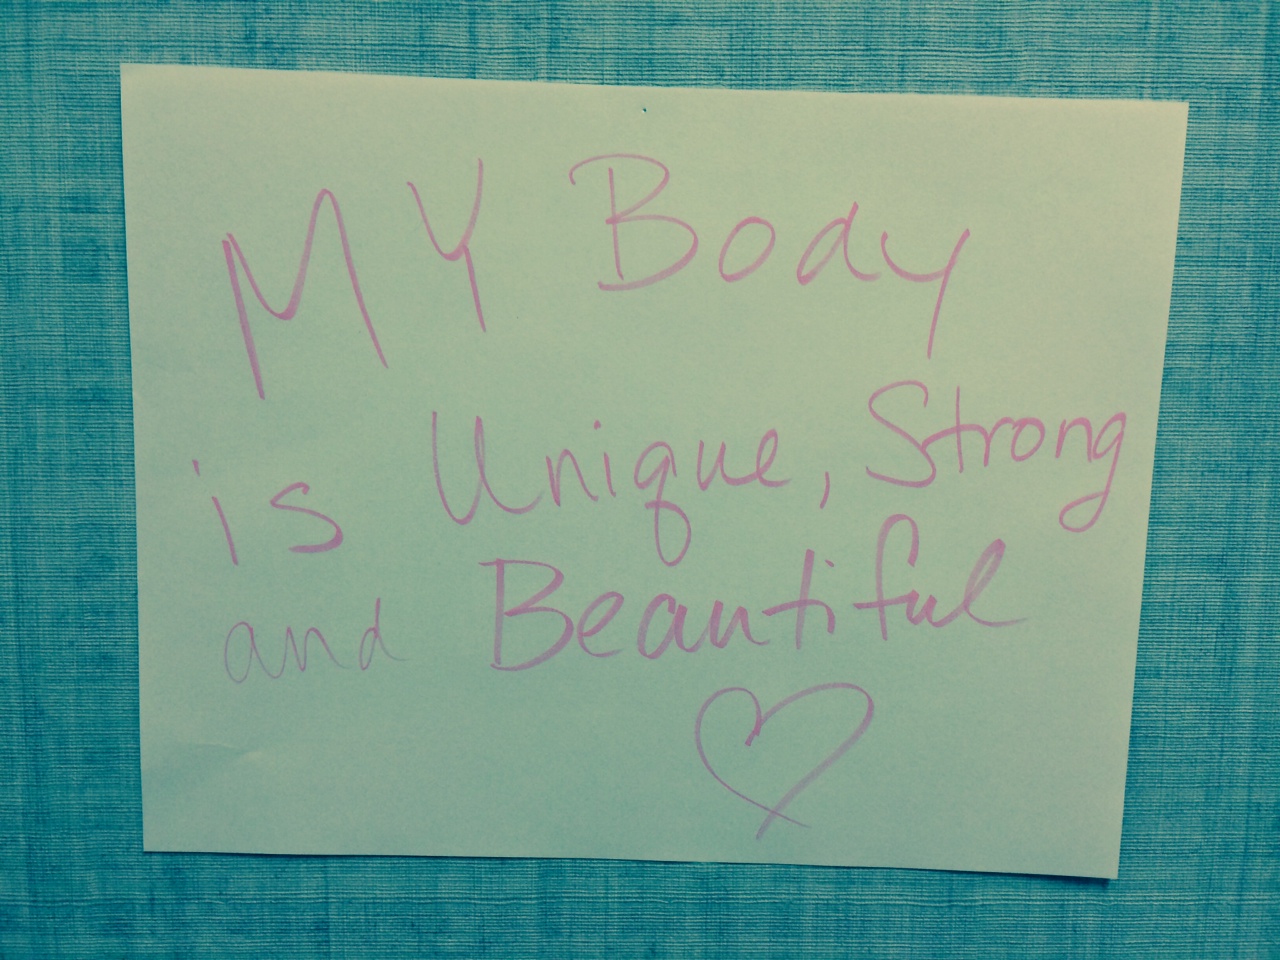 MY Body
is Unique, Strong
and Beautiful